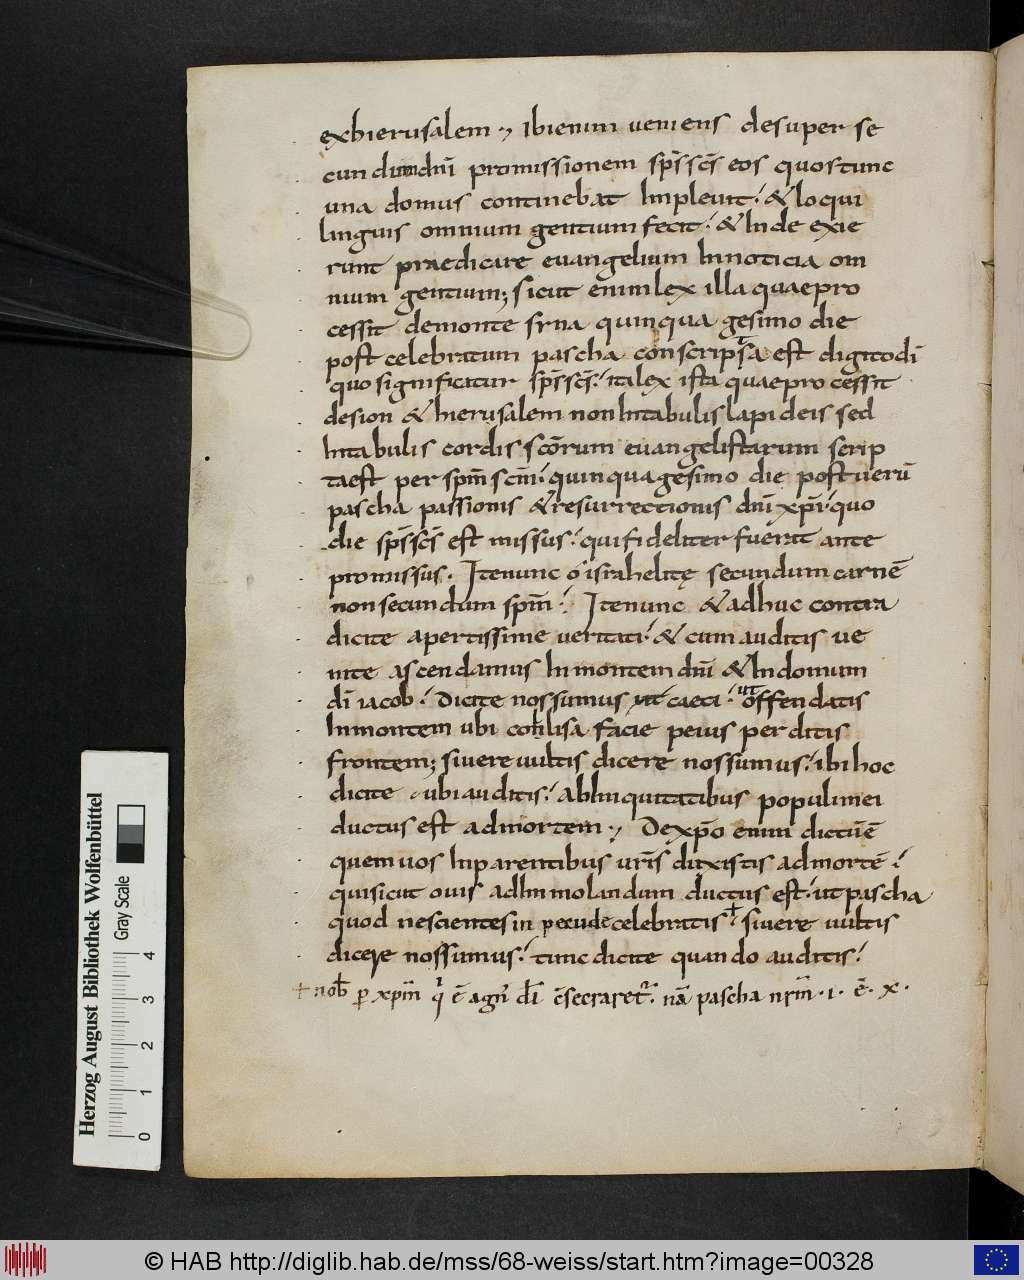 exhierusalem ; Ibienim veniens desuper se
cundumdnī promissionem sp̄s sc̄s eos quostunc
una domus continebat Impleuit : & loqui
linguis omnium gentium fecit : & Inde exie
runt praedicare euangelium Innoticia om
nium gentium ; sicut enimlex illa quaepro
cessit demonte sina quinquagesimo die
post celebratum pascha conscripta est digitodī
quo significatur sp̄s sc̄s : italex ista quaeprocessit
desion & hierusalem nonIntabulislapideis sed
Intabulis cordis scōrum euangelistarum scrip
taest per spm̄ scm̄ : quinquagesimo die postuerū
pascha passionis & resurrectionis dnī xpī : quo
die sp̄s sc̄s est missus : quifideliter fuerat ante
promissus . Itenunc o israhelitę secundum carnē
nonsecundum spm̄ : Itenunc & adhuc contra
dicite apertissime ueritati : & cum auditis ue
nite ascendamus Inmontem dnī & Indomum
dī iacob : Dicite nossumus ut caeci : ut offendatis
Inmontem ubi conlisa facie peius perditis
frontem ; siuere uultis dicere nossumus : ibihoc
dicite ubiauditis : abIniquitatibus populimei
ductus est admortem ; Dexp̄o enim dictūē
quemuos Inparentibus urīs duxistis admortē :
quisicut ouis adImmolandum ductus est : ut pascha
quod nescientes in pecude celebratis + : siuere uultis
dicere nossumus : tunc dicite quando auditis :
+ nob̄ p xpm̄ q ē agn̄ dī nā pascha nrm̄ . i . ē . x .